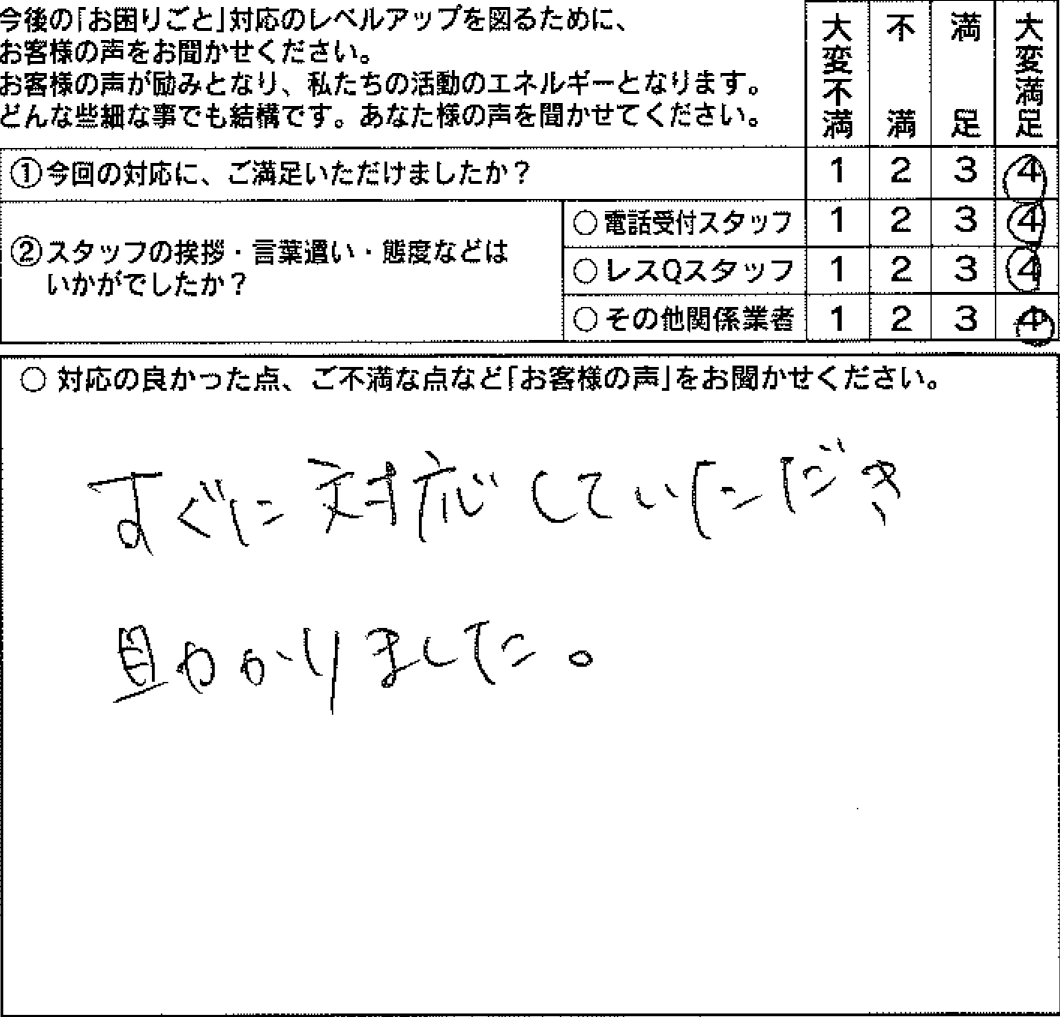 今後の「お困りごと」対応のレベルアップを図るために、
お客様の声をお聞かせください。
お客様の声が励みとなり、私たちの活動のエネルギーとなります。
どんな些細な事でも結構です。あなた様の声を聞かせてください。
大変不満 不満 満足 大変満足
①今回の対応に、ご満足いただけましたか? 1 2 3 4
②スタッフの挨拶・言葉遣い・態度などは
いかがでしたか?
○電話受付スタッフ 1 2 3 4
○レスQスタッフ 1 2 3 4
○その他関係業者 1 2 3 4
○ 対応の良かった点、ご不満な点など「お客様の声」をお聞かせください。
すぐに対応していただき
助かりました。